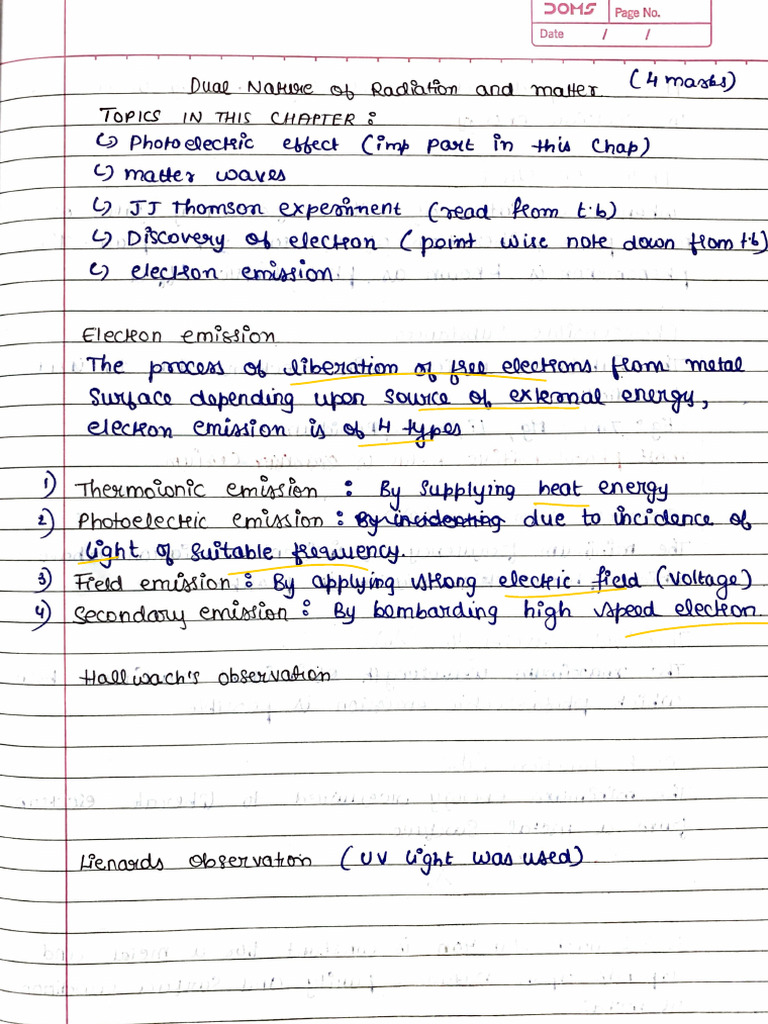 DOMS
Page No.
Date / /
Dual Nature of Radiation and matter (4 marks)
TOPICS IN THIS CHAPTER :
↳ Photoelectric effect (imp part in this Chap)
↳ matter waves
↳ JJ Thomson experiment (read from t.b)
↳ Discovery of electron (point wise note down from t.b)
↳ electron emission
Electron emission
The process of liberation of free electrons from metal
surface depending upon source of external energy,
electron emission is of 4 types
1) Thermoionic emission : By supplying heat energy
2) Photoelectric emission : By incidenting due to incidence of
light of suitable frequency.
3) Field emission : By applying strong electric field (voltage)
4) Secondary emission : By bombarding high speed electron
Hallwach's observation
Lienards observation (UV light was used)